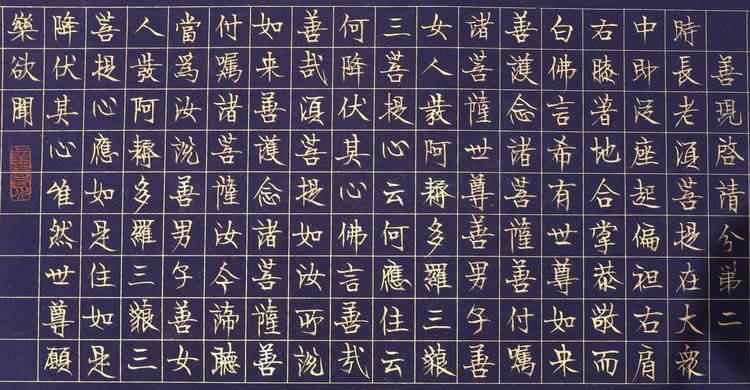 善現啓請分第二
時長老須菩提在大眾
中即從座起偏袒右肩
右膝著地合掌恭敬而
白佛言希有世尊如来
善護念諸菩薩善付囑
諸菩薩世尊善男子善
女人發阿耨多羅三藐
三菩提心云何應住云
何降伏其心佛言善哉
善哉須菩提如汝所說
如来善護念諸菩薩善
付囑諸菩薩汝今諦聽
當為汝說善男子善女
人發阿耨多羅三藐三
菩提心應如是住如是
降伏其心唯然世尊願
樂欲聞